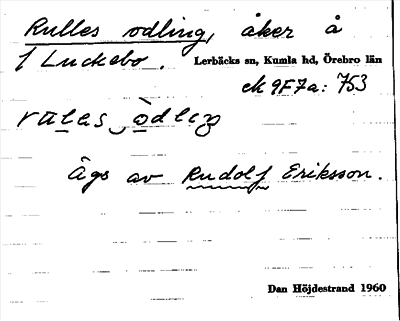 Rulles odling, åker å
1 Luckebo. Lerbäcks sn, Kumla hd, Örebro län
ek 9F7a: 753
Ägs av Rudolf Eriksson.
Dan Höjdestrand 1960